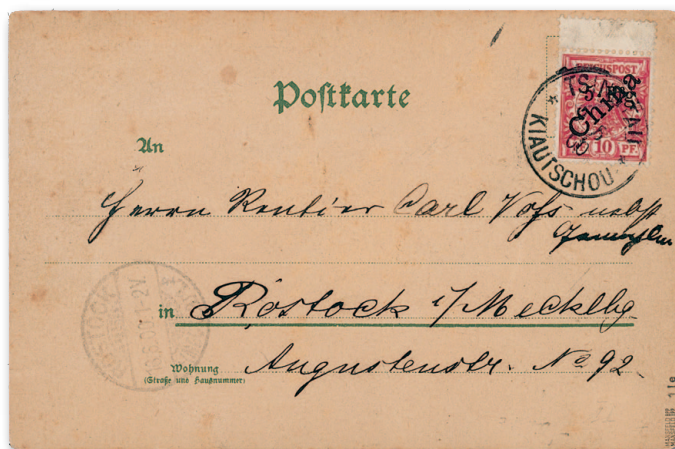 Postkarte
REICHSPOST
China
10 PF.
TSINTAU
KIAUTSCHOU
An
Herrn Rentier Carl Voss nebst
in Rostock i/Mecklbg.
Wohnung
(Straße und Hausnummer)
Augustenstr. No 92.
ROSTOCK